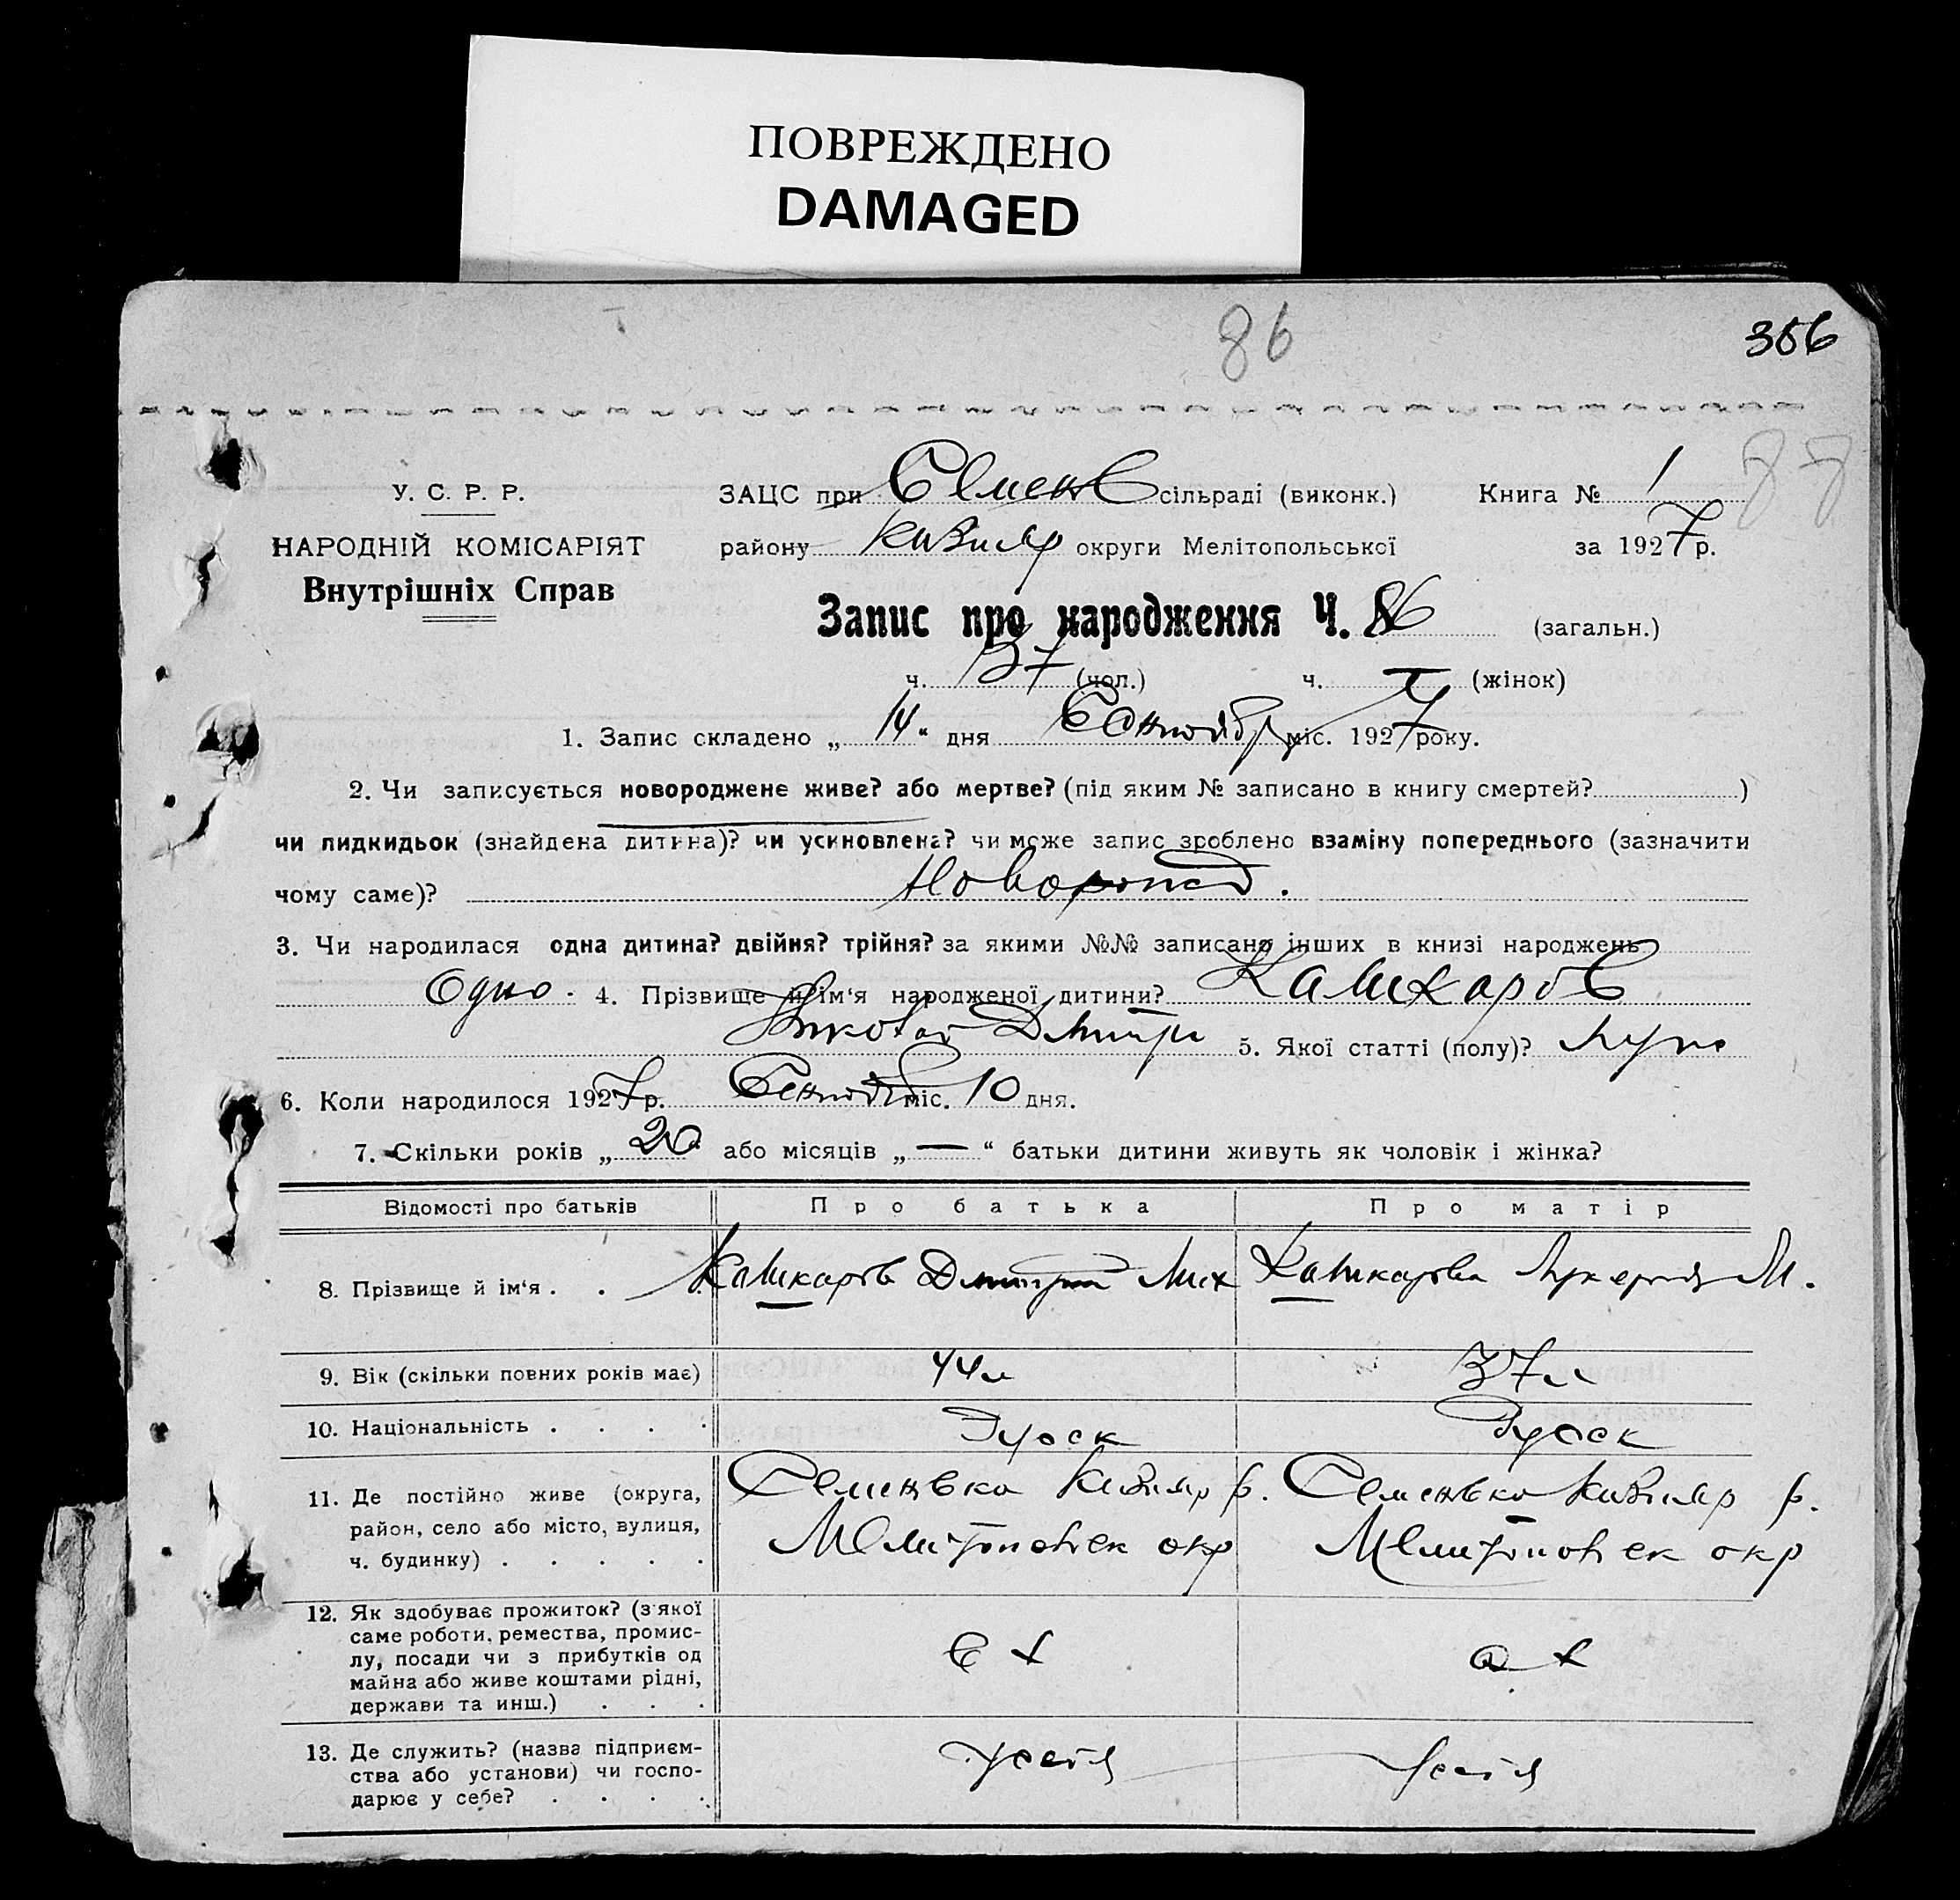 ПОВРЕЖДЕНО
DAMAGED
86
356
У. С. Р. Р.
НАРОДНІЙ КОМІСАРІЯТ
Внутрішніх Справ
ЗАЦС при Семенов сільраді (виконк.) Книга № 1
району Кизияр округи Мелітопольської за 1927 р.
Запис про народження Ч. 86 (загальн.)
ч. 37 (чол.) ч. (жінок)
1. Запис складено „ 14 “ дня Сентября міс. 1927 року.
2. Чи записується новороджене живе? або мертве? (під яким № записано в книгу смертей? )
чи пидкидьок (знайдена дитина)? чи усиновлена? чи може запис зроблено взаміну попереднього (зазначити
чому саме)? Новорожд.
3. Чи народилася одна дитина? двійня? трійня? за якими №№ записано інших в книзі народжень
Одно. 4. Прізвище й ім‘я народженої дитини? Кашкаров
Николай Дмитр 5. Якої статті (полу)? Муж
6. Коли народилося 1927 р. Сентяб міс. 10 дня.
7. Скільки років „ 20 “ або місяців „ — “ батьки дитини живуть як чоловік і жінка?
Відомості про батьків Про батька Про матір
8. Прізвище й ім‘я . . . Кашкаров Дмитрий Мих Кашкарова Лукерия М.
9. Вік (скільки повних років має) 44 л 37 л
10. Національність . . . . Русск Русск
11. Де постійно живе (округа, район, село або місто, вулиця, ч. будинку) . . . . . Семеновка Кизияр р. Семеновка Кизияр р.
Мелитопольск окр Мелитопольск окр
12. Як здобуває прожиток? (з якої
саме роботи, ремества, промис-
лу, посади чи з прибутків од
майна або живе коштами рідні,
держави та инш.) . . . с х с х
13. Де служить? (назва підприєм-
ства або установи) чи госпо-
дарює у себе? . . . . у себя у себя